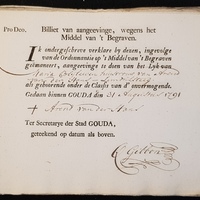 Pro Deo. Billiet van aangeevinge, wegens het
Middel van 't Begraven.
IK ondergeschreve verklare by deezen, ingevolge
van de Ordonnantie op 't Middel van 't Begraven
geëmaneert, aangeevinge te doen van het Lyk van
als gehoorende onder de Classis van d' onvermogende.
Gedaan binnen GOUDA, den 31 Augustus 1791
Ter Secretarye der Stad GOUDA,
geteekend op datum als boven.